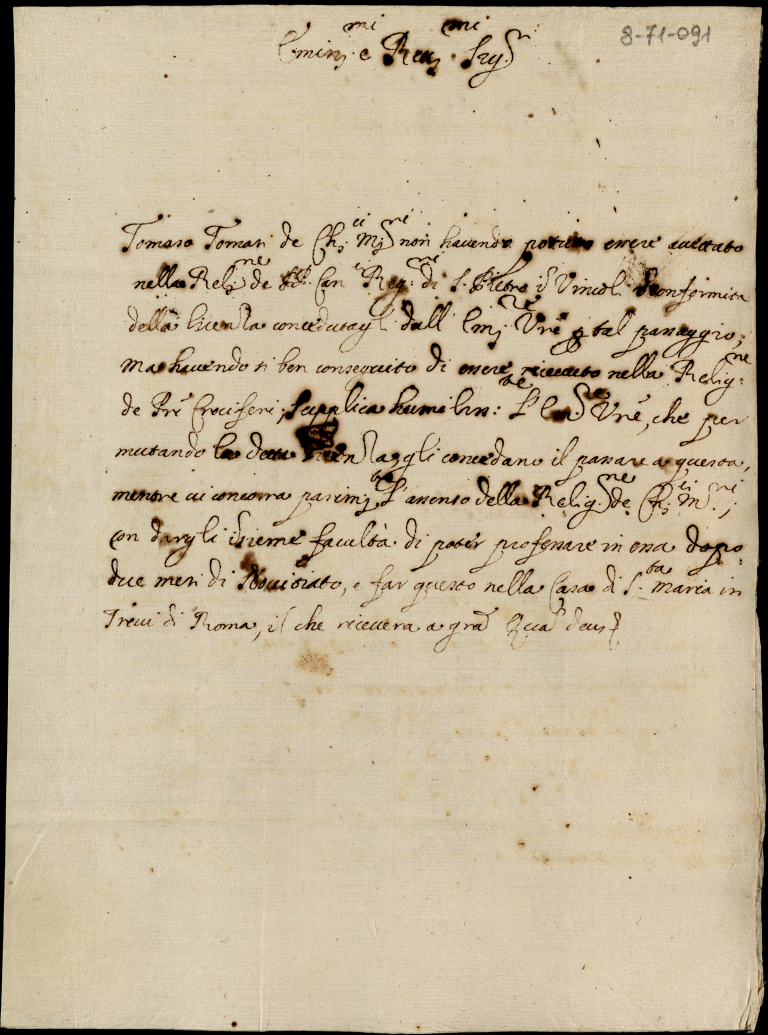 8-71-091
Emin.mi e Reu.mi Sig.r
Tomaso Tomasi de Ch.ci M.ri non hauendo potuto essere accettato
nella Relig.ne de Can.ci Reg.ri di S. Pietro in Vincoli conformita
della licenza concedutagli dall' Em.ze Vre p tal passaggio,
ma hauendo si ben conseguito di essere riceuuto nella Relig.ne
de Pri Crociferi; Supplica humilm.te l' Em.ze Vre, che per
mutando la detta licenza, gli concedano il passare a questa,
mentre ui concorra parim.te l' assenso della Relig.ne de Ch.ci M.ri;
con dargli insieme facultà di poter professare in essa dopo
due mesi di Nouiziato, e far questo nella Casa di S.ta Maria in
Treui di Roma, il che riceuera a gra Qua Deus